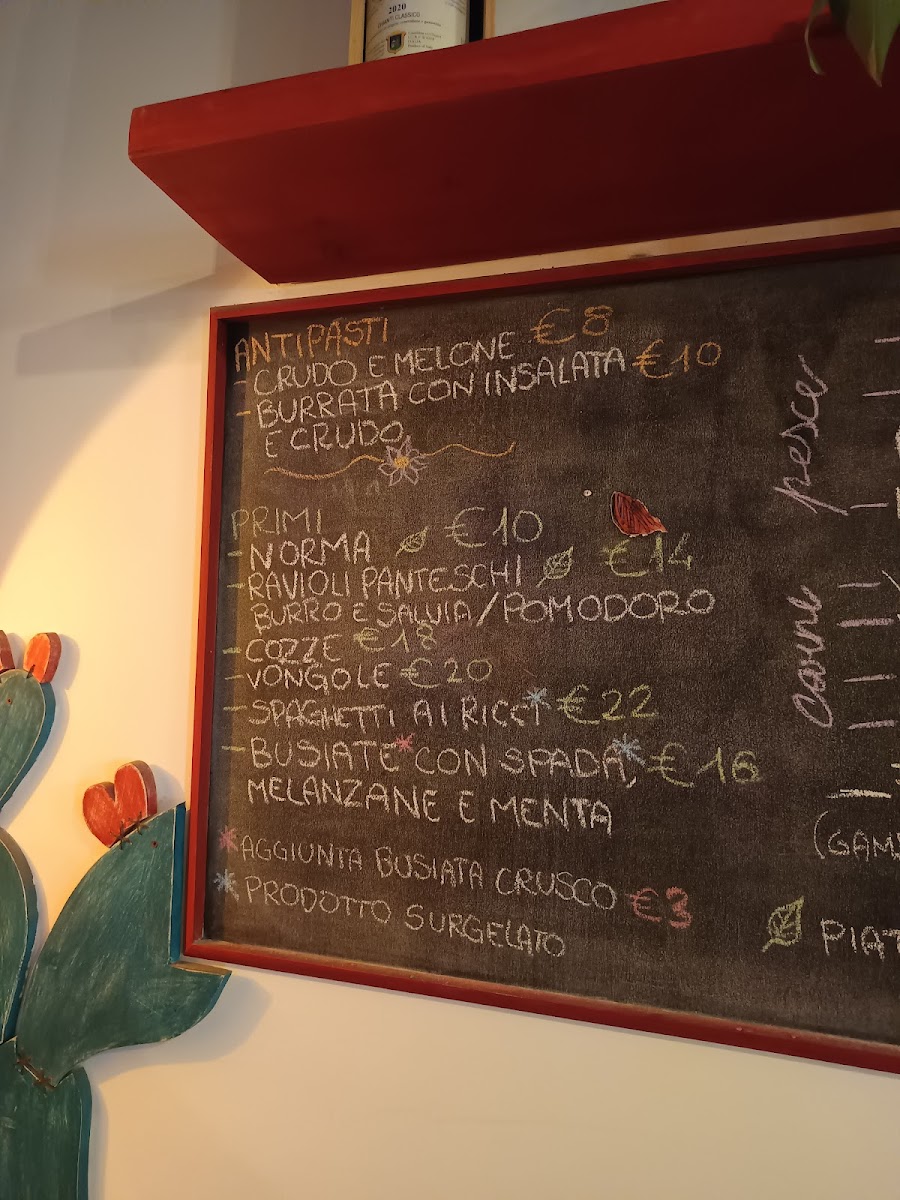 2020
CHIANTI CLASSICO
ANTIPASTI
- CRUDO E MELONE €8
- BURRATA CON INSALATA €10
E CRUDO
PRIMI
- NORMA €10
- RAVIOLI PANTESCHI €14
BURRO E SALVIA/POMODORO
- COZZE €18
- VONGOLE €20
- SPAGHETTI AI RICCI* €22
- BUSIATE* CON SPADA*, €16
MELANZANE E MENTA
* AGGIUNTA BUSIATA CRUSCO €3
* PRODOTTO SURGELATO
pesce
carne
(GAM
PIAT